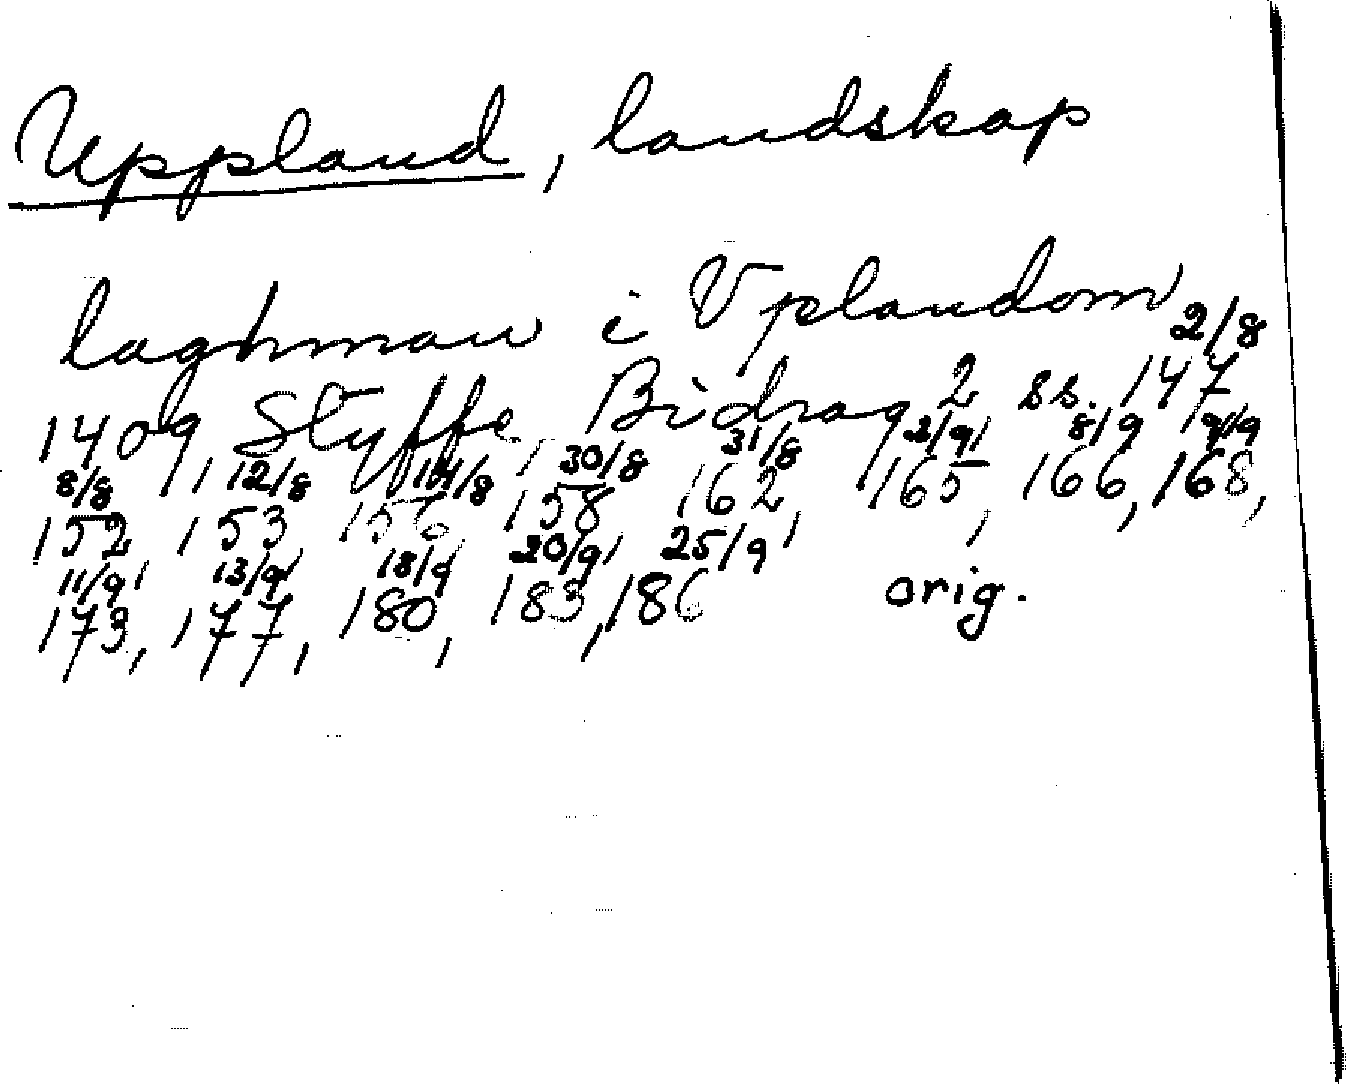 Uppland, landskap
laghman i Vplandom
2/8
1409 Styffe, Bidrag 2 ss. 147,
8/8 12/8 14/8 30/8 31/8 2/9 8/9 9/9
152, 153, 156, 158, 162, 165, 166, 168,
11/9 13/9 18/9 20/9 25/9
173, 177, 180, 183, 186 orig.